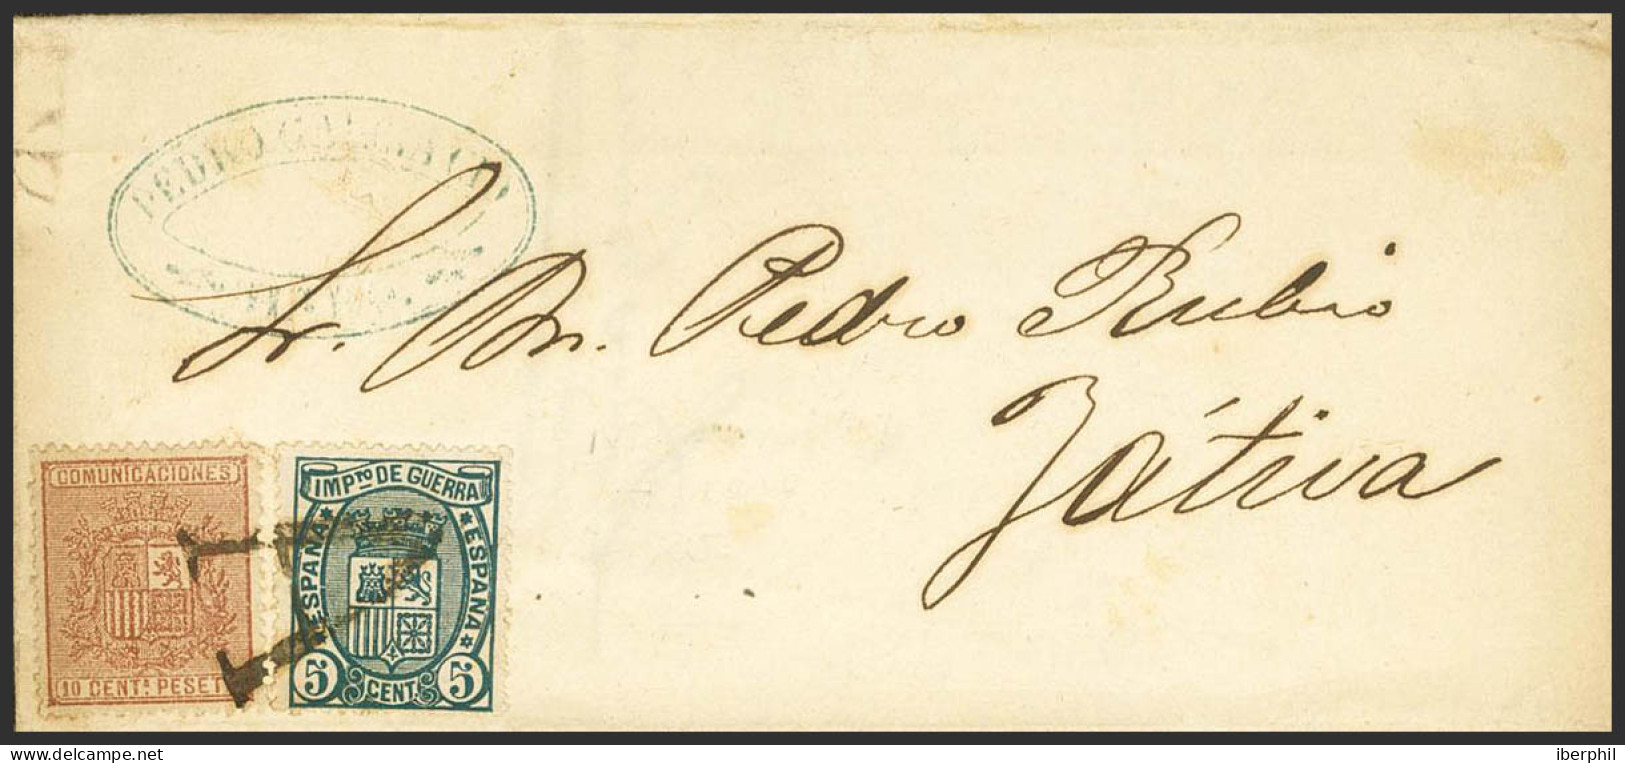 PEDRO
Sr. Dn. Pedro Rubio
Játiva
COMUNICACIONES
10 CENT.ˢ PESETA
IMPᵗᵒ DE GUERRA
* ESPANA *
* ESPANA *
5 CENT. 5
www.todocoleccion.net
iberphil